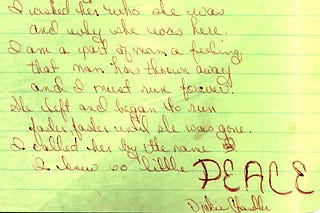 I asked her who she was
and why she was here.
I am a part of man a feeling
that man has thrown away
and I must run forever.
She left and began to run
faster, faster until she was gone.
I called her by the name
I knew so little PEACE
Chandler